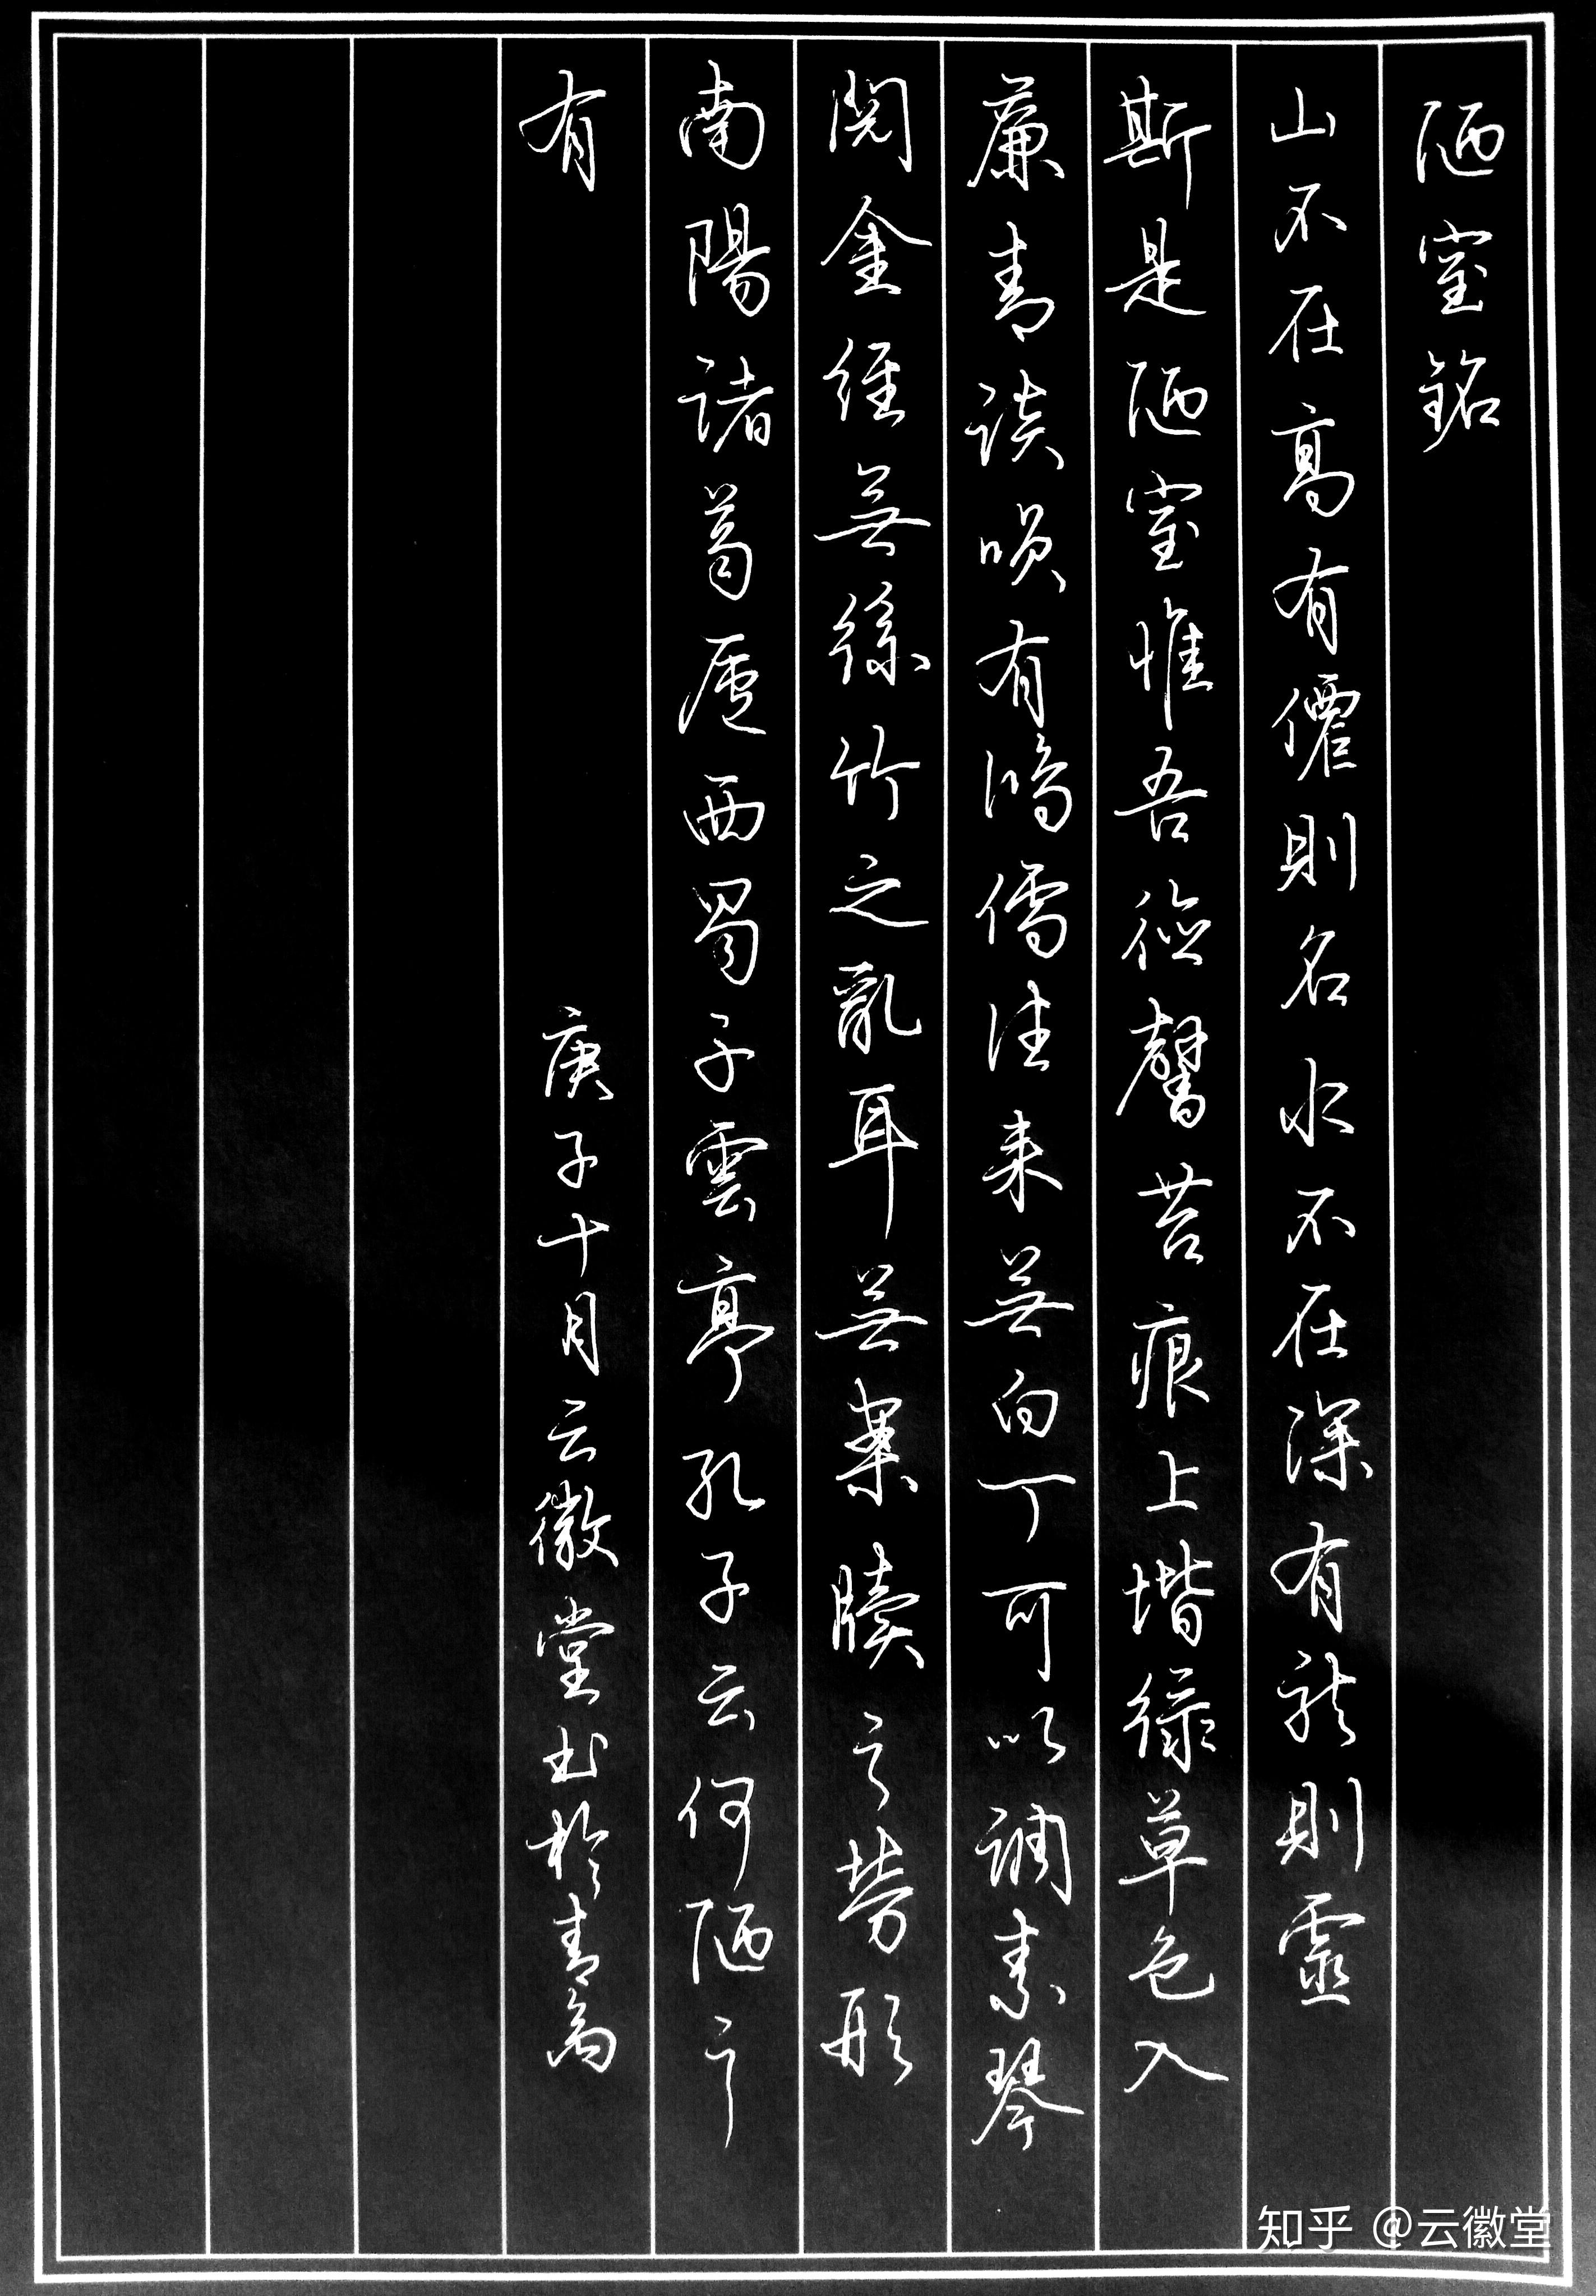 陋室銘
山不在高有僊則名水不在深有龍則靈
斯是陋室惟吾德馨苔痕上堦綠草色入
簾青談咲有鴻儒往来無白丁可以調素琴
閲金經無絲竹之亂耳無案牘之勞形
南陽諸葛廬西蜀子雲亭孔子云何陋之
有
庚子十月云徽堂书於青島
知乎 @云徽堂